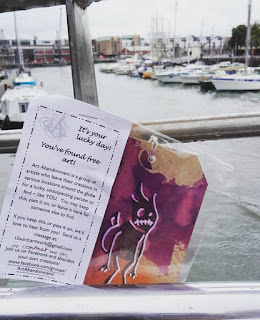 It's your
lucky day!
You've found free
art!
Art Abandonment is a group of
artists who leave their creations in
various locations around the globe
for a lucky, unsuspecting person to
find - like YOU. You may keep
this, pass it on, or leave it here for
someone else to find.
If you keep this or pass it on, we'd
love to hear from you! Send us a
message at:
@gmail.com
join us on Facebook and abandon
your own creations!
www.facebook.com/groups/
ArtAbandonment